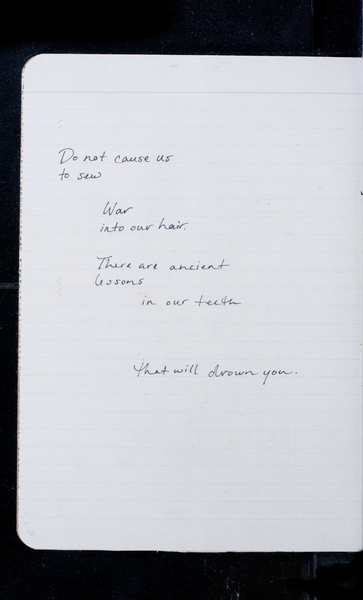 Do not cause us
to sew
War
into our hair.
There are ancient
lessons
in our teeth
that will drown you.